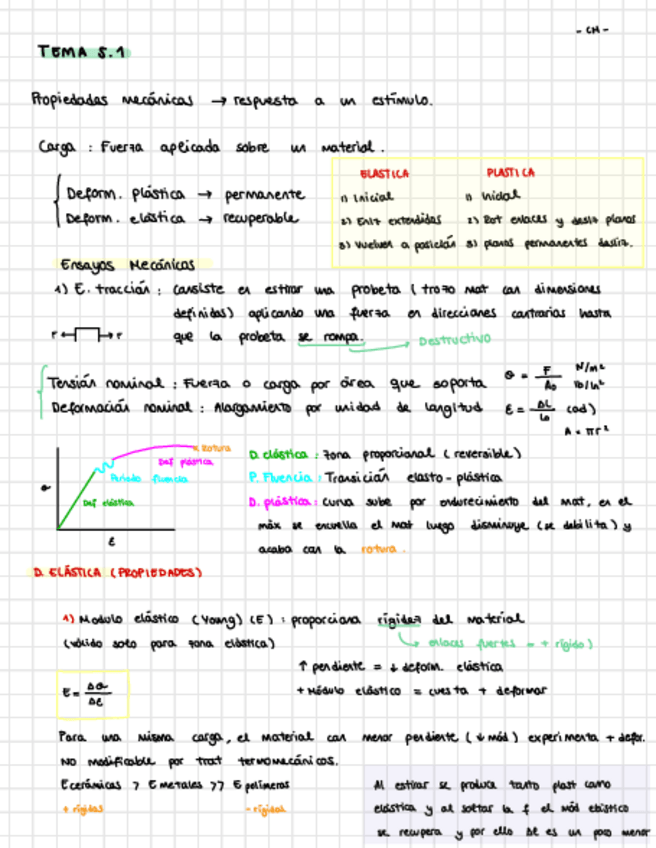 - CM -
TEMA 5.1
Propiedades mecánicas → respuesta a un estímulo.
Carga : Fuerza aplicada sobre un material.
Deform. plástica → permanente
Deform. elástica → recuperable
ELASTICA
1) Inicial
2) Enlz extendidas
3) Vuelven a posición
PLASTICA
1) Inicial
2) Rot enlaces y desliz planos
3) planos permanentes desliz.
Ensayos Mecánicos
1) E. tracción : consiste en estirar una probeta ( trozo mat con dimensiones
definidas) aplicando una fuerza en direcciones contrarias hasta
F ← → F que la probeta se rompa. → Destructivo
Tensión nominal : Fuerza o carga por área que soporta σ = F / A₀ N/m² lb/in²
Deformación nominal : Alargamiento por unidad de longitud ε = ΔL / L₀ (ad)
A = πr²
Rotura
Def plástica
Periodo fluencia
Def elástica
σ
ε
D. elástica : zona proporcional ( reversible)
P. Fluencia : Transición elasto - plástica
D. plástica : curva sube por endurecimiento del mat, en el
máx se encuella el mat luego disminuye (se debilita) y
acaba con la rotura.
D. ELÁSTICA (PROPIEDADES)
1) Modulo elástico (Young) (E) : proporciona rigidez del material
(válido solo para zona elástica) → enlaces fuertes = + rígido)
↑ pendiente = ↓ deform. elástica
E = Δσ / Δε
+ Módulo elástico = cuesta + deformar
Para una misma carga, el material con menor pendiente ( ↓ mód ) experimenta + defor.
NO modificable por trat termomecánicos.
E cerámicas > E metales >> E polímeros
+ rígidas - rígidas
Al estirar se produce tanto plast como
elástica y al soltar la f el mód elástico
se recupera y por ello Δε es un poco menor